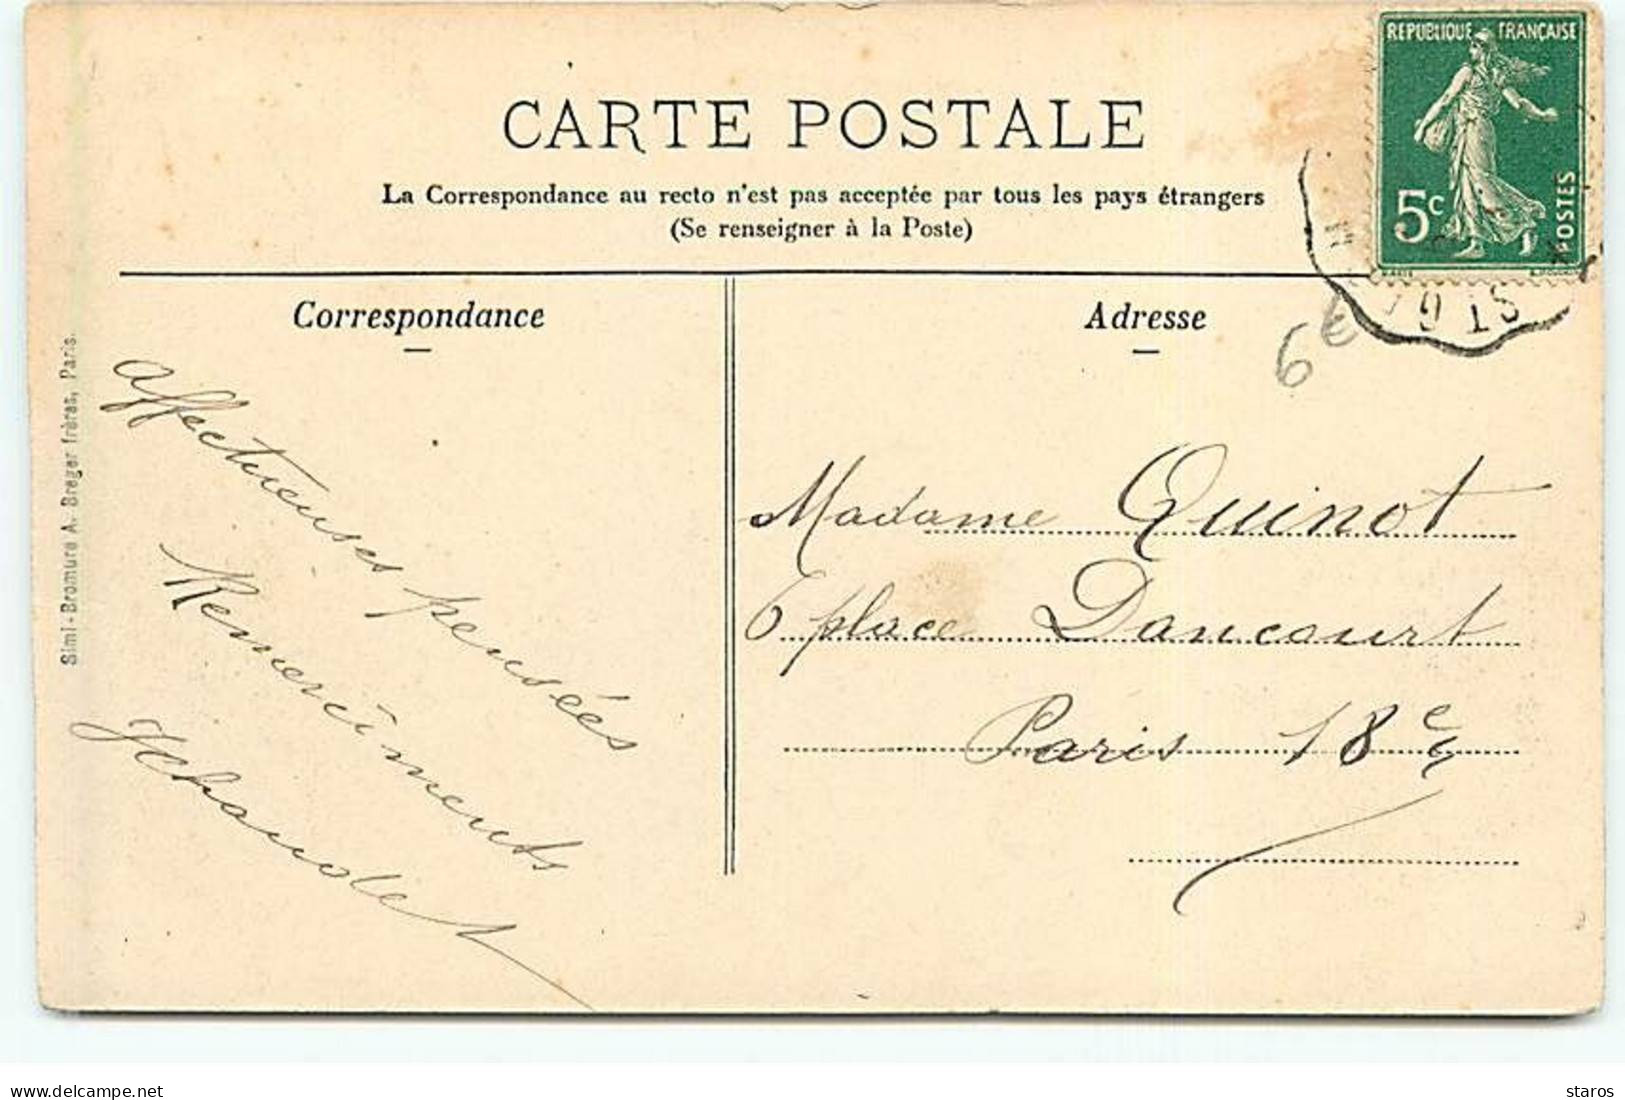 RÉPUBLIQUE FRANÇAISE
5c
POSTES
CARTE POSTALE
La Correspondance au recto n'est pas acceptée par tous les pays étrangers
(Se renseigner à la Poste)
Correspondance
Adresse
6€
Simi-Bromure A. Breger frères, Paris.
Affectueuses pensées
Remerciments
Madame Quinot
6 place Dancourt
Paris 18e
delcampe.net
staros